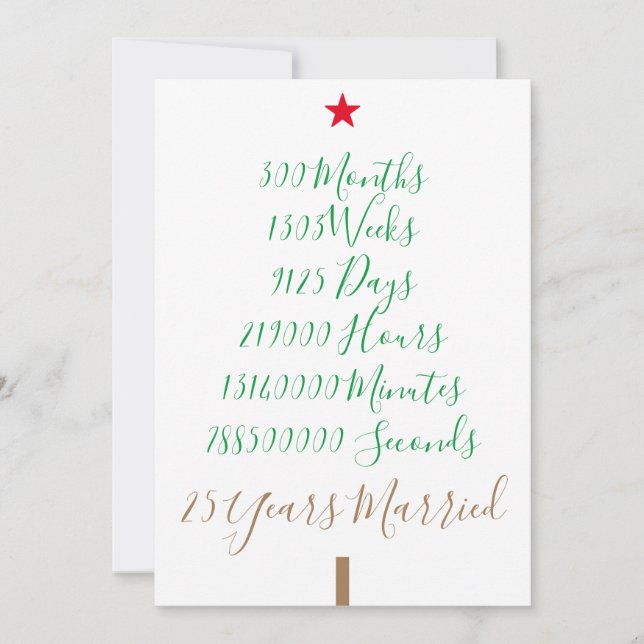 300 Months
1303 Weeks
9125 Days
219000 Hours
13140000 Minutes
788500000 Seconds
25 Years Married